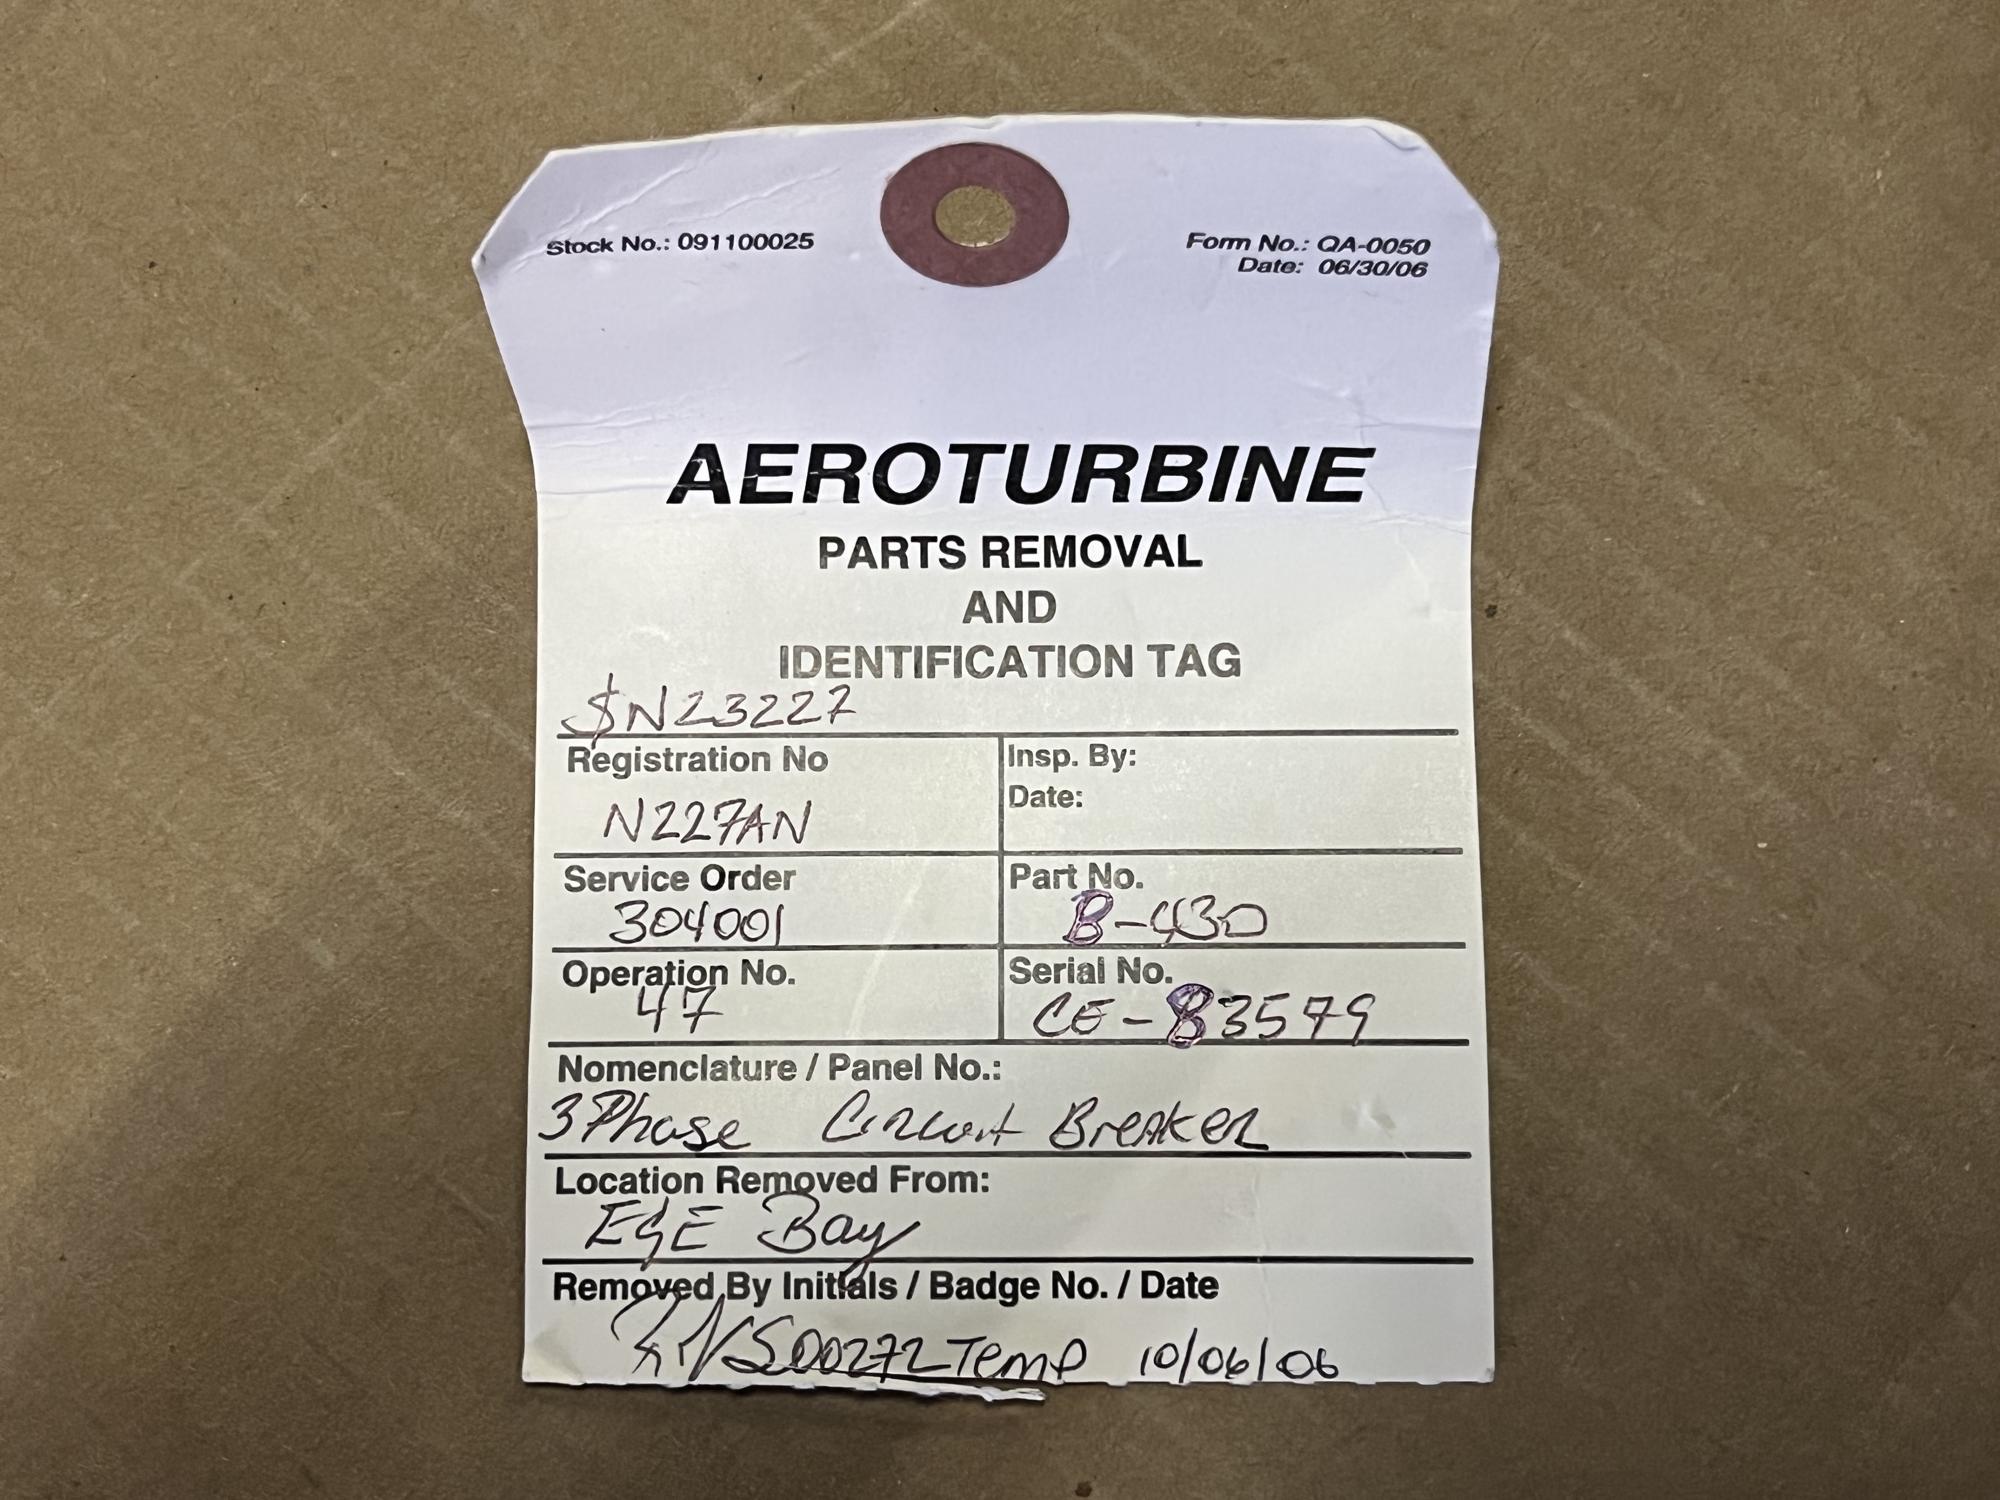 Stock No.: 091100025
Form No.: QA-0050
Date: 06/30/06
AEROTURBINE
PARTS REMOVAL
AND
IDENTIFICATION TAG
$N23227
Registration No
N227AN
Insp. By:
Date:
Service Order
304001
Part No.
B-430
Operation No.
47
Serial No.
CE-83579
Nomenclature / Panel No.:
3 Phase Circuit Breaker
Location Removed From:
E&E Bay
Removed By Initials / Badge No. / Date
S00272 Temp 10/06/06